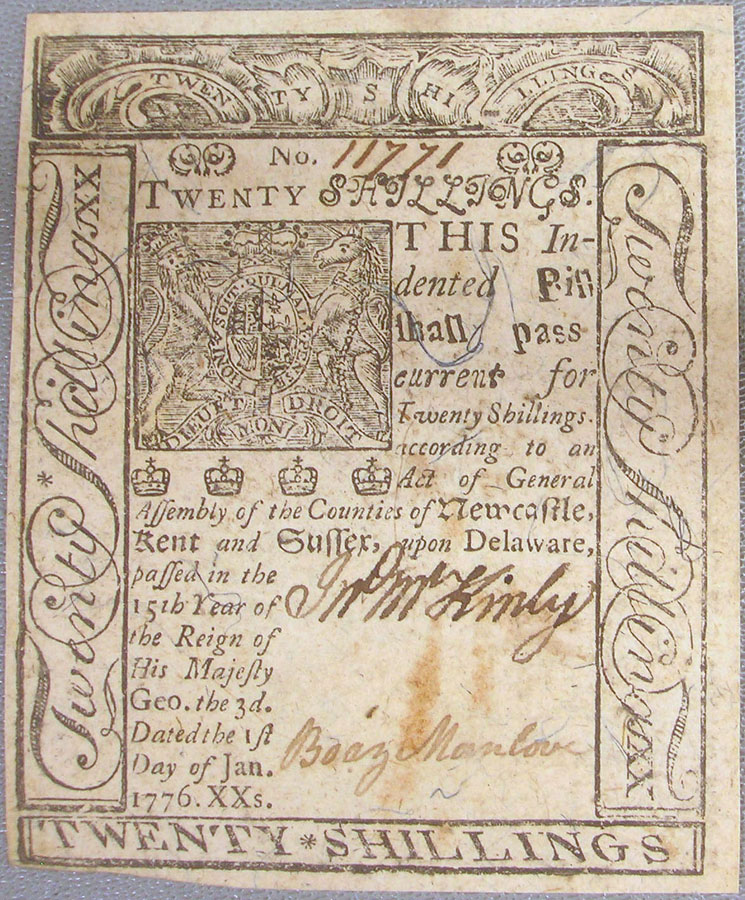 TWENTY SHILLINGS
No. 11771
TWENTY SHILLINGS.
THIS In-
dented Bill
ſhall paſs
current for
Twenty Shillings.
according to an
Act of General
Aſſembly of the Counties of Newcaſtle,
Kent and Suſſex, upon Delaware,
paſſed in the
15th Year of
the Reign of
His Majeſty
Geo. the 3d.
Dated the 1ſt
Day of Jan.
1776. XXs.
DIEU ET MON DROIT
Jno McKinly
Boaz Manlove
Twenty Shillings XX
Twenty Shillings XX
TWENTY * SHILLINGS